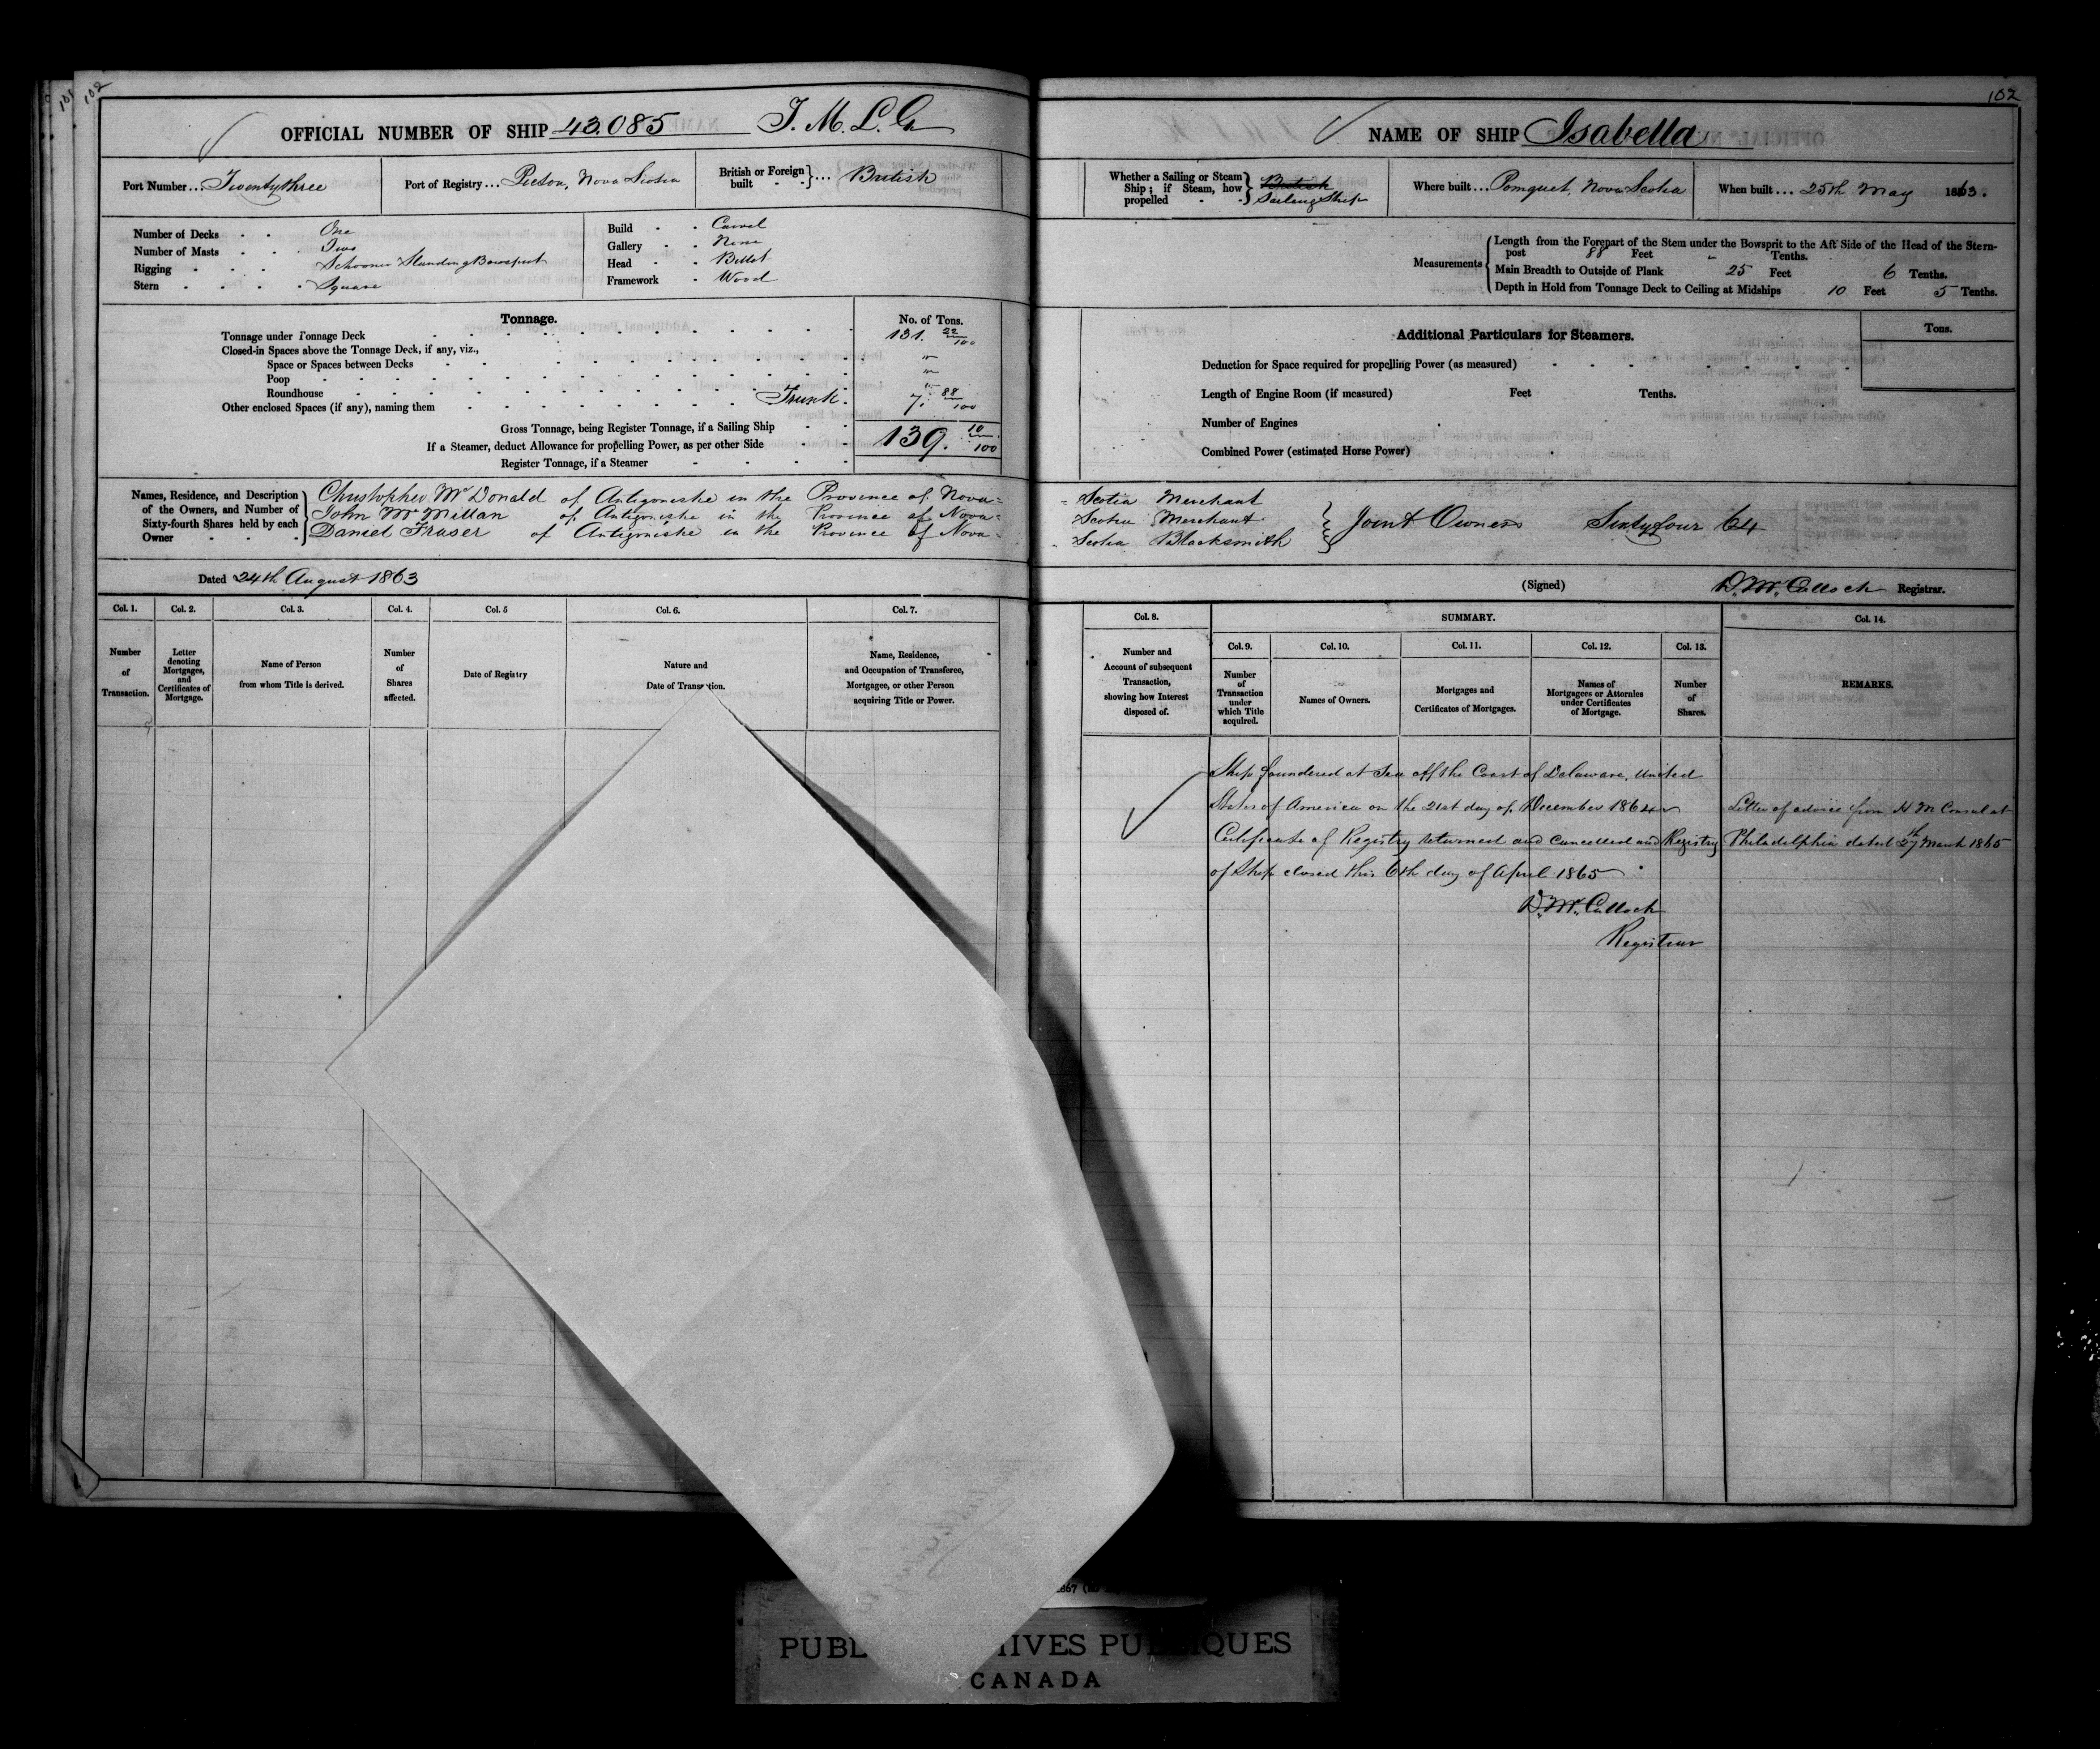 102
OFFICIAL NUMBER OF SHIP 43.085 T. M. L. G
Port Number ... Twentythree
Port of Registry ... Pictou, Nova Scotia
British or Foreign built } ... British
Number of Decks One
Number of Masts Two
Rigging Schooner Standing Bowsprit
Stern Square
Build Carvel
Gallery None
Head Billet
Framework Wood
Tonnage. No. of Tons.
Tonnage under Tonnage Deck 131. 22/100
Closed-in Spaces above the Tonnage Deck, if any, viz.,
Space or Spaces between Decks "
Poop "
Roundhouse "
Other enclosed Spaces (if any), naming them Trunk. 7. 88/100
Gross Tonnage, being Register Tonnage, if a Sailing Ship 139. 10/100
If a Steamer, deduct Allowance for propelling Power, as per other Side
Register Tonnage, if a Steamer
Names, Residence, and Description of the Owners, and Number of Sixty-fourth Shares held by each Owner
Christopher McDonald of Antigonishe in the Province of Nova=
John McMillan of Antigonishe in the Province of Nova=
Daniel Fraser of Antigonishe in the Province of Nova=
Dated 24th August 1863
Col. 1. Col. 2. Col. 3. Col. 4. Col. 5 Col. 6. Col. 7.
Number of Transaction.
Letter denoting Mortgages, and Certificates of Mortgage.
Name of Person from whom Title is derived.
Number of Shares affected.
Date of Registry
Nature and Date of Transaction.
Name, Residence, and Occupation of Transferee, Mortgagee, or other Person acquiring Title or Power.
102
NAME OF SHIP Isabella
Whether a Sailing or Steam Ship; if Steam, how propelled } British Sailing Ship
Where built ... Pomquet, Nova Scotia
When built ... 25th May 1863.
Measurements
Length from the Forepart of the Stem under the Bowsprit to the Aft Side of the Head of the Stern-
post 88 Feet " Tenths.
Main Breadth to Outside of Plank 25 Feet 6 Tenths.
Depth in Hold from Tonnage Deck to Ceiling at Midships 10 Feet 5 Tenths.
Additional Particulars for Steamers. Tons.
Deduction for Space required for propelling Power (as measured)
Length of Engine Room (if measured) Feet Tenths.
Number of Engines
Combined Power (estimated Horse Power)
- Scotia Merchant
Scotia Merchant } Joint Owners Sixtyfour 64
- Scotia Blacksmith
(Signed) D. McCulloch Registrar.
Col. 8. SUMMARY. Col. 14.
Col. 9. Col. 10. Col. 11. Col. 12. Col. 13.
Number and Account of subsequent Transaction, showing how Interest disposed of.
Number of Transaction under which Title acquired.
Names of Owners.
Mortgages and Certificates of Mortgages.
Names of Mortgagees or Attornies under Certificates of Mortgage.
Number of Shares.
REMARKS.
Ship foundered at Sea off the Coast of Delaware, United
States of America on the 21st day of December 1864
Certificate of Registry returned and cancelled and Registry
of Ship closed this 6th day of April 1865
D. McCulloch
Registrar
Letter of advice from H M Consul at
Philadelphia dated 27th March 1865
1867
PUBL HIVES PU IQUES
CANADA